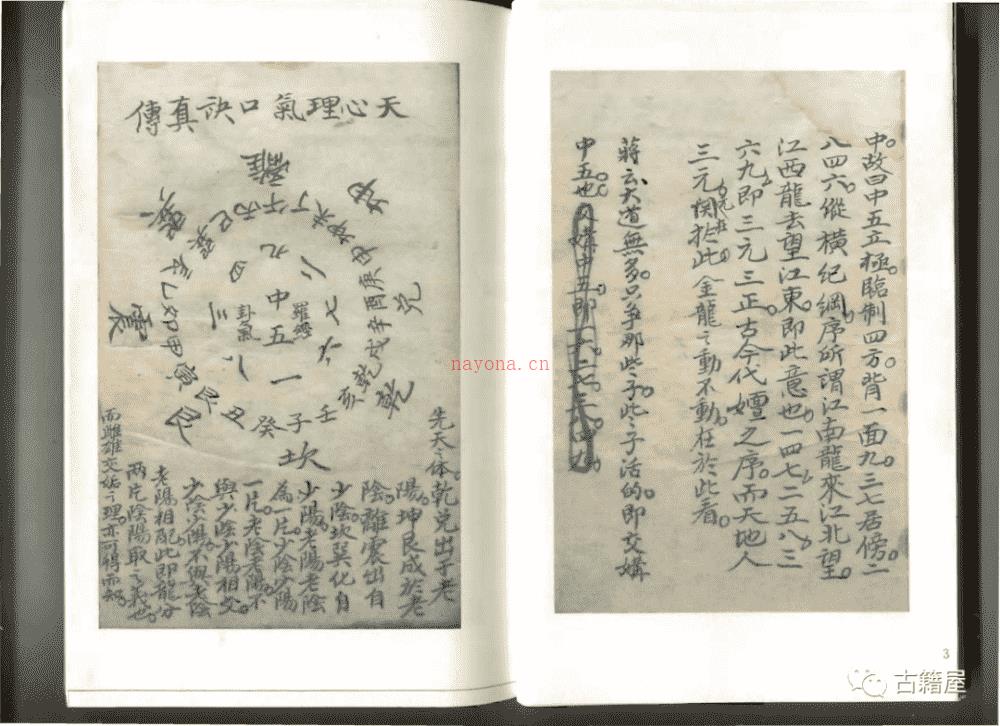 天心理氣口訣真傳
離
坤
兌
乾
坎
艮
震
巽
丙午丁未坤申庚酉辛戌乾亥壬子癸丑艮寅甲卯乙辰巽巳
九
二
七
六
一
八
三
四
中五
羅經
卦氣
先天之体。乾兌出于老
陽。坤艮成於老
陰。離震出自
少陰。坎巽化自
少陽。老陽老陰
為一片。少陰少陽
一片。老陰老陽不
與少陰少陽相交。
少陰少陽。不與老陰
老陽相配。此即龍分
兩片陰陽取之義也。
而雌雄交姤之理。亦可得而知。
中。故曰中五立極。臨制四方。背一面九。三七居傍。二
八四六。縱橫紀綱。序所謂江南龍來江北望。
江西龍去望江東。即此意也。一四七二五八三
六九即三元三正古今代嬗之序。而天地人
三元関挩此。金龍之動不動。在於此看。
蔣云大道無多。只爭那些子。些子活的。即交媾
中五也。
nayona.cn
古籍屋
3